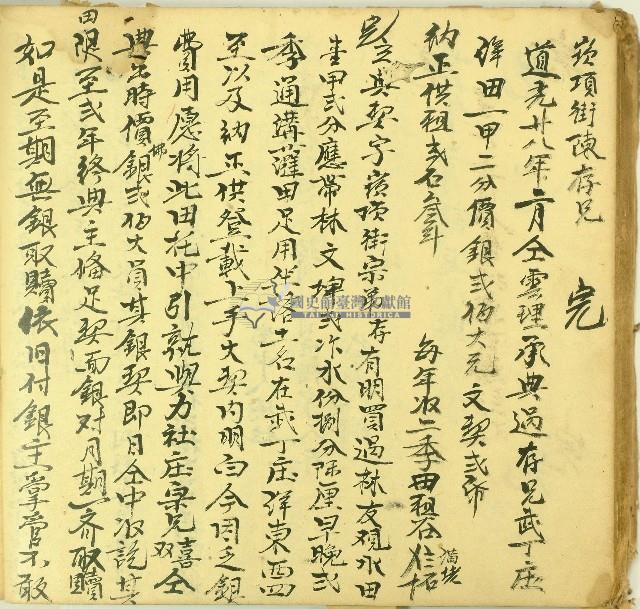 嵌項街陳存兄　完
道光廿八年二月仝雲理承典過存兄武丁庄
洋田一甲二分價銀弍佰大元文契弍紙
納正供租弍石叁斗　每年收二季田租谷
立典契字嵌項街宗弟存有明買過林友硯水田
壹甲弍分應帶林文埤弍次水份捌分陸厘早晚弍
季通溝灌田足用址土名在武丁庄洋東西四
至以及納正供登載上手大契內明白今因乏銀
費用愿將此田托中引就與力社庄梁兄喜双仝
典出時價佛銀弍佰大員其銀契即日仝中收訖其
田限至弍年終典主備足契面銀對月期一齊取贖
如是至期無銀取贖依旧付銀主掌管不敢
國史館臺灣文獻館
TAIWAN HISTORICA